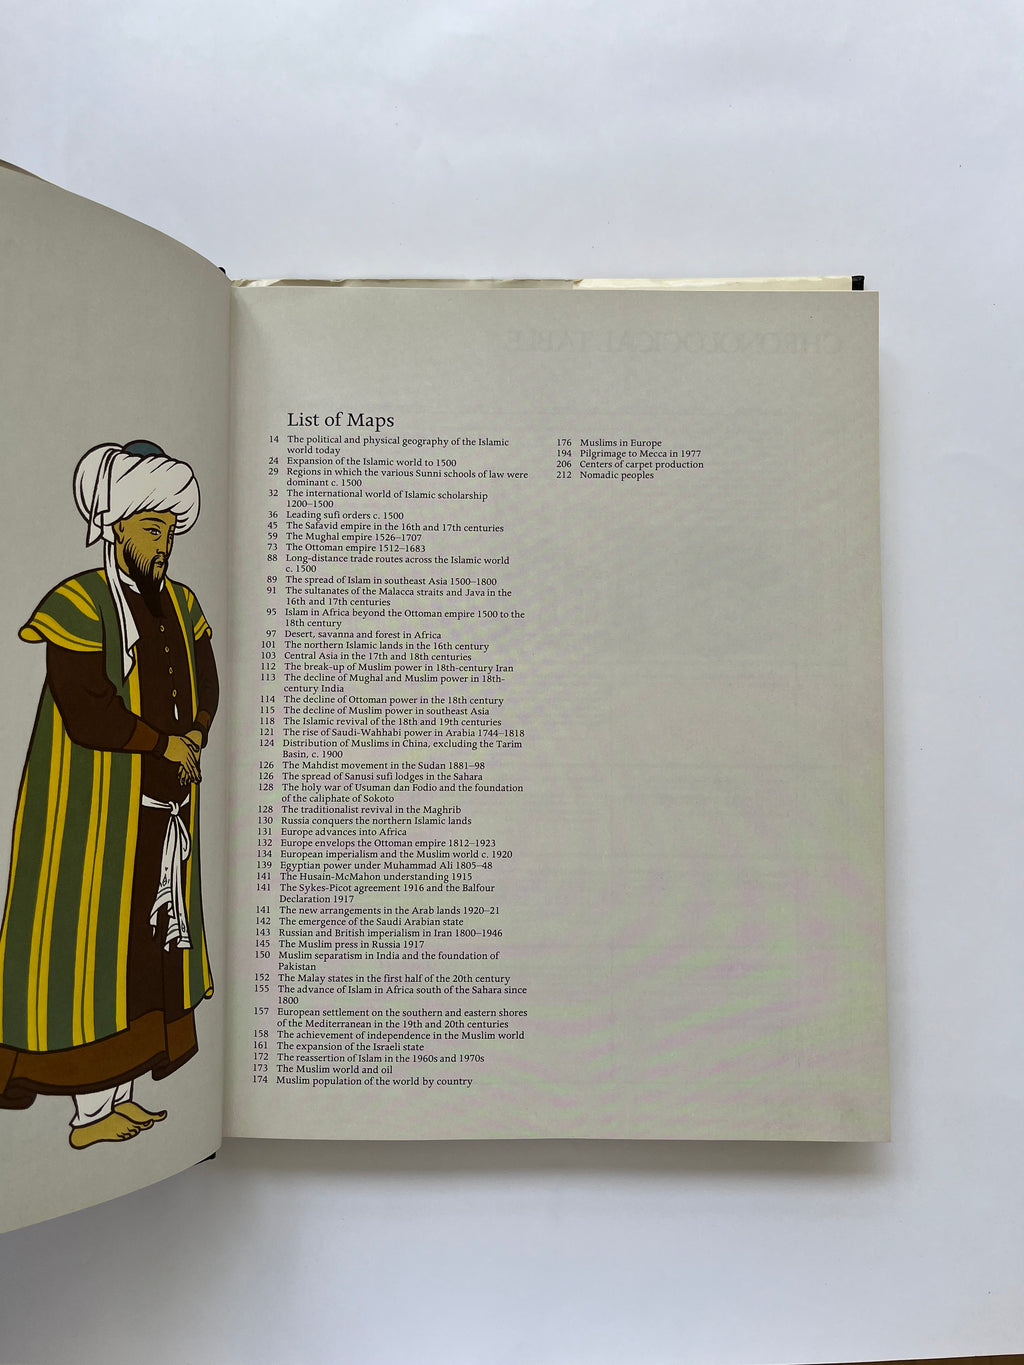 CHRONOLOGICAL TABLE
List of Maps
14 The political and physical geography of the Islamic
world today
24 Expansion of the Islamic world to 1500
29 Regions in which the various Sunni schools of law were
dominant c. 1500
32 The international world of Islamic scholarship
1200–1500
36 Leading sufi orders c. 1500
45 The Safavid empire in the 16th and 17th centuries
59 The Mughal empire 1526–1707
73 The Ottoman empire 1512–1683
88 Long-distance trade routes across the Islamic world
c. 1500
89 The spread of Islam in southeast Asia 1500–1800
91 The sultanates of the Malacca straits and Java in the
16th and 17th centuries
95 Islam in Africa beyond the Ottoman empire 1500 to the
18th century
97 Desert, savanna and forest in Africa
101 The northern Islamic lands in the 16th century
103 Central Asia in the 17th and 18th centuries
112 The break-up of Muslim power in 18th-century Iran
113 The decline of Mughal and Muslim power in 18th-
century India
114 The decline of Ottoman power in the 18th century
115 The decline of Muslim power in southeast Asia
118 The Islamic revival of the 18th and 19th centuries
121 The rise of Saudi-Wahhabi power in Arabia 1744–1818
124 Distribution of Muslims in China, excluding the Tarim
Basin, c. 1900
126 The Mahdist movement in the Sudan 1881–98
126 The spread of Sanusi sufi lodges in the Sahara
128 The holy war of Usuman dan Fodio and the foundation
of the caliphate of Sokoto
128 The traditionalist revival in the Maghrib
130 Russia conquers the northern Islamic lands
131 Europe advances into Africa
132 Europe envelops the Ottoman empire 1812–1923
134 European imperialism and the Muslim world c. 1920
139 Egyptian power under Muhammad Ali 1805–48
141 The Husain-McMahon understanding 1915
141 The Sykes-Picot agreement 1916 and the Balfour
Declaration 1917
141 The new arrangements in the Arab lands 1920–21
142 The emergence of the Saudi Arabian state
143 Russian and British imperialism in Iran 1800–1946
145 The Muslim press in Russia 1917
150 Muslim separatism in India and the foundation of
Pakistan
152 The Malay states in the first half of the 20th century
155 The advance of Islam in Africa south of the Sahara since
1800
157 European settlement on the southern and eastern shores
of the Mediterranean in the 19th and 20th centuries
158 The achievement of independence in the Muslim world
161 The expansion of the Israeli state
172 The reassertion of Islam in the 1960s and 1970s
173 The Muslim world and oil
174 Muslim population of the world by country
176 Muslims in Europe
194 Pilgrimage to Mecca in 1977
206 Centers of carpet production
212 Nomadic peoples